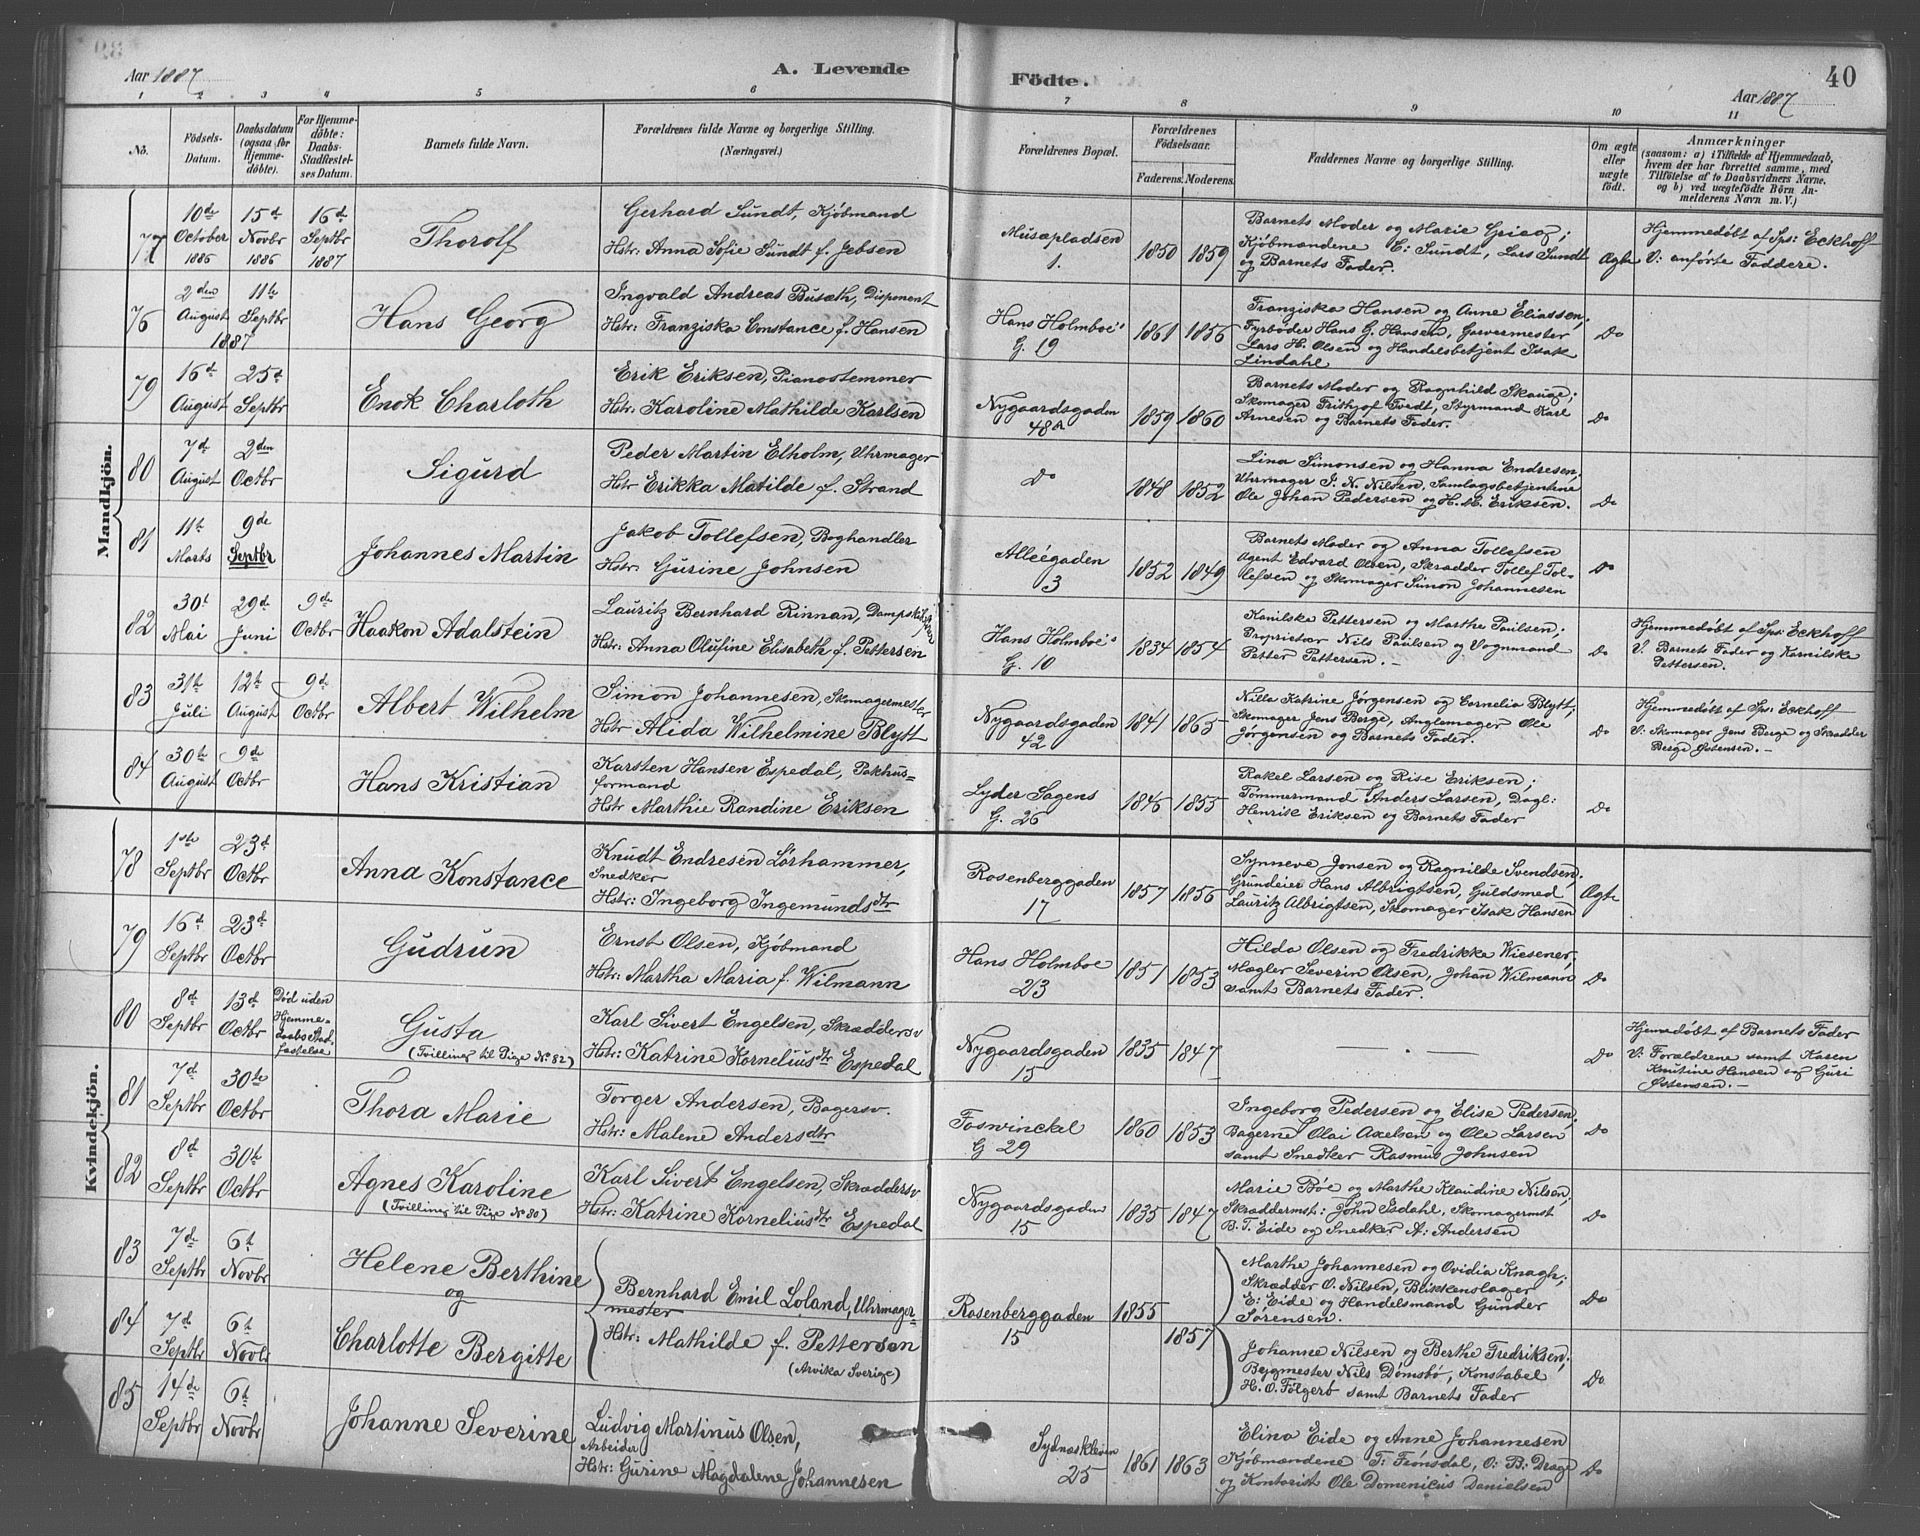 Aar 1887
A. Levende Födte.
40
Aar 1887
1 2 3 4 5 6 7 8 9 10 11
No.
Födsels-
Datum.
Daabsdatum
(ogsaa for
Hjemme-
döbte).
For Hjemme-
döbte:
Daabs-
Stadfæstel-
ses Datum.
Barnets fulde Navn.
Forældrenes fulde Navne og borgerlige Stilling.
(Næringsvei.)
Forældrenes Bopæl.
Forældrenes
Födselsaar.
Faderens. Moderens.
Faddernes Navne og borgerlige Stilling.
Om ægte
eller
uægte
födt.
Anmærkninger
(saasom: a) i Tilfælde af Hjemmedaab,
hvem der har forrettet samme, med
Tilföielse af to Daabsvidners Navne,
og b) ved uægtefödte Börn An-
melderens Navn m. V.)
Mandkjön.
77
10de
October
1886
15d
Novbr
1886
16d
Septbr
1887
Thorolf
Gerhard Sundt, Kjøbmand
Hstr: Anna Sofie Sundt f. Jebsen
Musæpladsen
1.
1850 1859
Barnets Moder og Marie Grieg;
Kjøbmandene C: Sundt, Lars Sundt
og Barnets Fader.
Ægte
Hjemmedøbt af Sps: Eckhoff
V: anførte Faddere.
2den
August
1887
11te
Septbr
Hans Georg
Ingvald Andreas Busæth, Disponent
Hstr: Franziska Constance f. Hansen
Hans Holmboe's
G. 19
1861 1856
Franziska Hansen og Anne Eliassen;
Fyrbøder Hans G. Hansen, Garvermester
Lars H. Olsen og Handelsbetjent Isak
Lindahl
Do
79
16d
August
25d
Septbr
Enok Charloth
Erik Eriksen, Pianostemmer
Hstr: Karoline Mathilde Karlsen
Nygaardsgaden
48a
1859 1860
Barnets Moder og Ragnhild Skauge;
Skomager Frithjof Tvedt, Styrmand Karl
Arnesen og Barnets Fader.
Do
80
7d
August
2den
Octbr
Sigurd
Peder Martin Elholm, Uhrmager
Hstr Erikka Matilde f. Strand
Do
1848 1852
Lina Simonsen og Hanna Endresen;
Uhrmager J. N. Nilsen, Samlagsbetjentene
Ole Johan Pedersen og H. M. Eriksen.
Do
81
11te
Marts
9de
Septbr
Johannes Martin
Jakob Tollefsen, Boghandler
Hstr: Gurine Johnsen
Alléegaden
3
1852 1849
Barnets Moder og Anna Tollefsen
Agent Edvard Olsen, Skrædder Tollef Tol-
lefsen og Skomager Simon Johannesen
Do
82
30t
Mai
29d
Juni
9de
Octbr
Haakon Adalstein
Lauritz Bernhard Rinnan,
Hstr: Anna Olufine Elisabeth f. Pettersen
Hans Holmboe's
G. 10
1834 1854
Kanilske Pettersen og Marthe Paulsen;
Proprietær Nils Paulsen og Vognmand
Petter Pettersen. -
Do
Hjemmedøbt af Sps: Eckhoff
V. Barnets Fader og Karnilske
Pettersen.
83
31te
Juli
12te
August
9d
Octbr
Albert Wilhelm
Simon Johannesen, Skomagermester
Hstr: Alida Wilhelmine Blytt
Nygaardsgaden
42
1841 1865
Nilla Katrine Jørgensen og Cornelia Blytt;
Skomager Jens Berge, Anglemager Ole
Jørgensen og Barnets Fader.
Do
Hjemmedøbt af Sps: Eckhoff
V: Skomager Jens Berge og Skrædder
Berge Østensen. -
84
30te
August
9d
Octbr
Hans Kristian
Karsten Hansen Espedal, Pakhus-
formand
Hstr Marthie Randine Eriksen
Lyder Sagens
G. 26
1845 1855
Rakel Larsen og Rise Eriksen;
Tømmermand Anders Larsen, Dagl:
Henrik Eriksen og Barnets Fader
Do
Kvindekjön.
78
1ste
Septbr
23d
Octbr
Anna Konstance
Knudt Endresen Lørhammer,
Snedker
Hstr: Ingeborg Ingemundsdtr
Rosenberggaden
17
1857 1856
Synneve Jonsen og Ragnilde Svendsen;
Grundeier Hans Albrigtsen, Guldsmed
Lauritz Albrigtsen, Skomager Isak Hansen
Ægte
79
16d
Septbr
23d
Octbr
Gudrun
Ernst Olsen, Kjøbmand
Hstr: Martha Maria f. Wilmann
Hans Holmboe
23
1851 1853
Hilda Olsen og Fredrikke Wiesener;
Mægler Severin Olsen, Johan Wilmann
samt Barnets Fader.
Do
80
8d
Septbr
13d
Octbr
Død uden
Hjemme-
daabs Stad-
fæstelse
Gusta
(Tvilling til Pige No. 82)
Karl Sivert Engelsen, Skræddersv
Hstr: Katrine Korneliusdtr Espedal
Nygaardsgaden
15
1835 1847
- - -
Do
Hjemedøbt af Barnets Fader
V: Forældrene samt Karen
Knutine Hansen og Guri
Østensen. -
81
7d
Septbr
30te
Octbr
Thora Marie
Torger Andersen, Bagersv.
Hstr: Malene Andersdtr
Foswinckel
G 29
1860 1853
Ingeborg Pedersen og Elise Pedersen;
Bagerne Olai Axelsen og Ole Larsen
samt Snedker Rasmus Johnsen
Do
82
8d
Septbr
30te
Octbr
Agnes Karoline
(Tvilling til Pige No 80)
Karl Sivert Engelsen, Skræddersv
Hstr: Katrine Korneliusdtr Espedal
Nygaardsgaden
15
1835 1847
Marie Bøe og Marthe Klaudine Nilsen;
Skræddermst: John Isdahl, Skomagermst
B. T. Eide og Snedker A: Andersen
Do
83
7de
Septbr
6t
Novbr
Helene Berthine
og
Bernhard Emil Loland, Uhrmager-
mester
Rosenberggaden
15
1855
Marthe Johannesen og Ovidia Knagh;
Skrædder O. Nilsen, Blikkenslager
E: Eide og Handelsmand Gunder
Sørensen.
Do
84
7d
Septbr
6t
Novbr
Charlotte Bergitte
Hstr: Mathilde f. Pettersen
(Arvika Sverige)
1857
Johanne Nilsen og Berthe Fredriksen;
Bygmester Nils Dømsbø, Konstabel
H. O. Følgerø samt Barnets Fader
Do
85
14de
Septbr
6t
Novbr
Johanne Severine
Ludvig Martinus Olsen,
Arbeider
Hstr: Gurine Magdalene Johannesen
Sydnæskleven
25
1861 1863
Elina Eide og Anne Johannesen
Kjøbmændene T: Frønsdal, O: B: Drage
og Kontorist Ole Domenicus Danielsen
Do